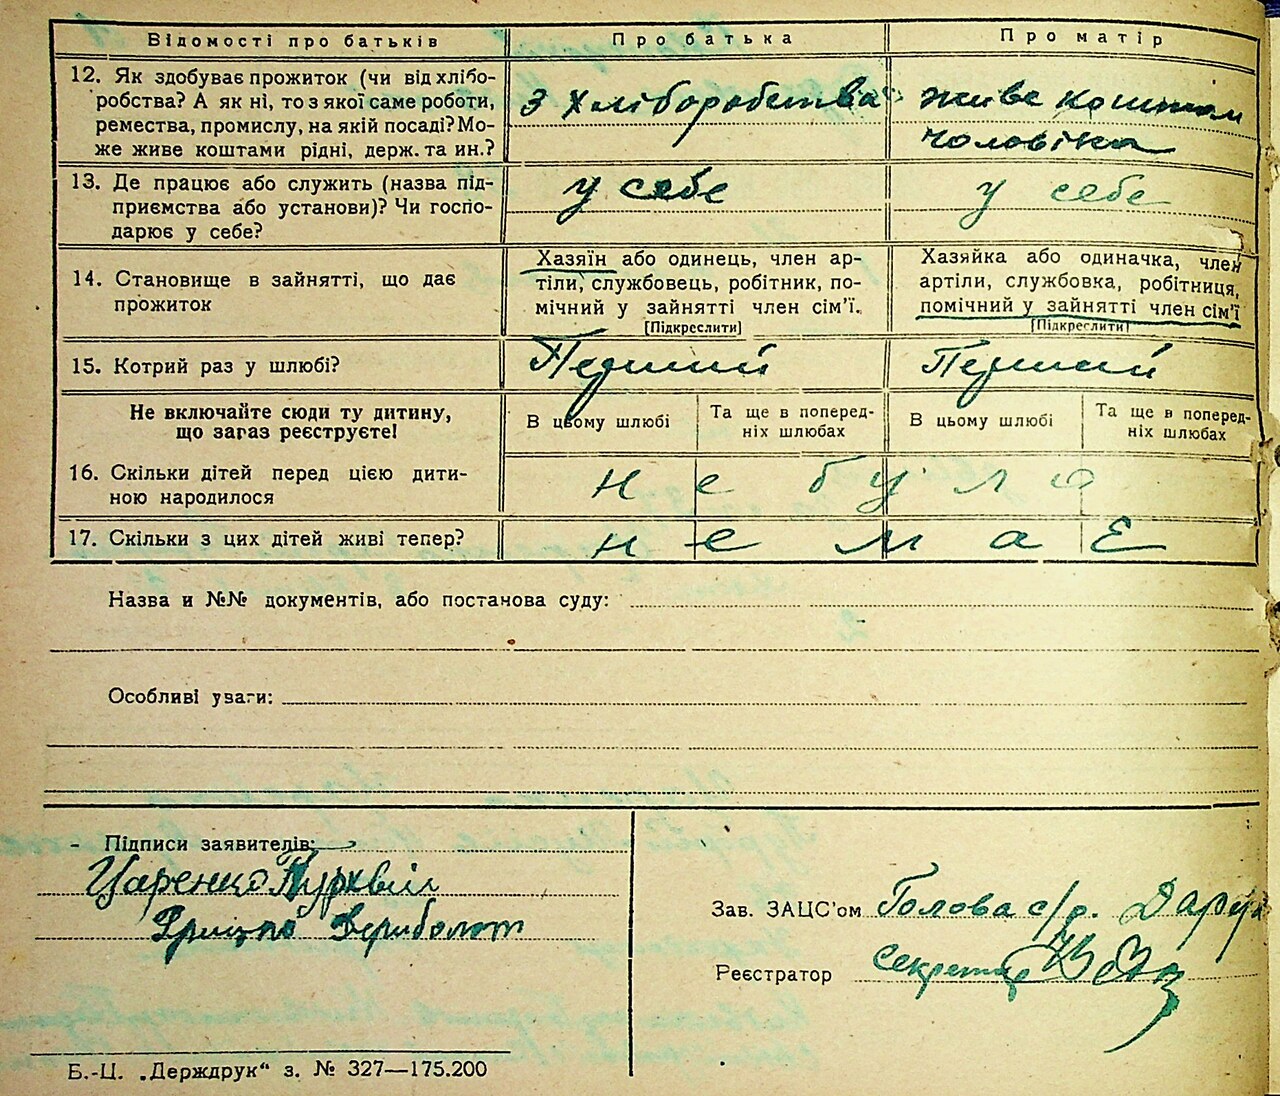 Відомості про батьків
Про батька
Про матір
12. Як здобуває прожиток (чи від хлібо-
робства? А як ні, то з якої саме роботи,
ремества, промислу, на якій посаді? Мо-
же живе коштами рідні, держ. та ин.?
З Хліборобства
живе коштом
чоловіка
13. Де працює або служить (назва під-
приємства або установи)? Чи госпо-
дарює у себе?
у себе
у себе
14. Становище в зайнятті, що дає
прожиток
Хазяїн або одинець, член ар-
тіли, службовець, робітник, по-
мічний у зайнятті член сім'ї.
[Підкреслити]
Хазяйка або одиначка, член
артіли, службовка, робітниця,
помічний у зайнятті член сім'ї
[Підкреслити]
15. Котрий раз у шлюбі?
Перший
Перший
Не включайте сюди ту дитину,
що загаз реєструєте!
В цьому шлюбі
Та ще в поперед-
ніх шлюбах
В цьому шлюбі
Та ще в поперед-
ніх шлюбах
16. Скільки дітей перед цією дити-
ною народилося
не було
17. Скільки з цих дітей живі тепер?
немає
Назва и №№ документів, або постанова суду:
Особливі уваги:
Підписи заявителів:
Царенко
Грицько
Зав. ЗАЦС'ом Голова с/р.
Реєстратор секретар
Б.-Ц. „Держдрук“ з. № 327—175.200